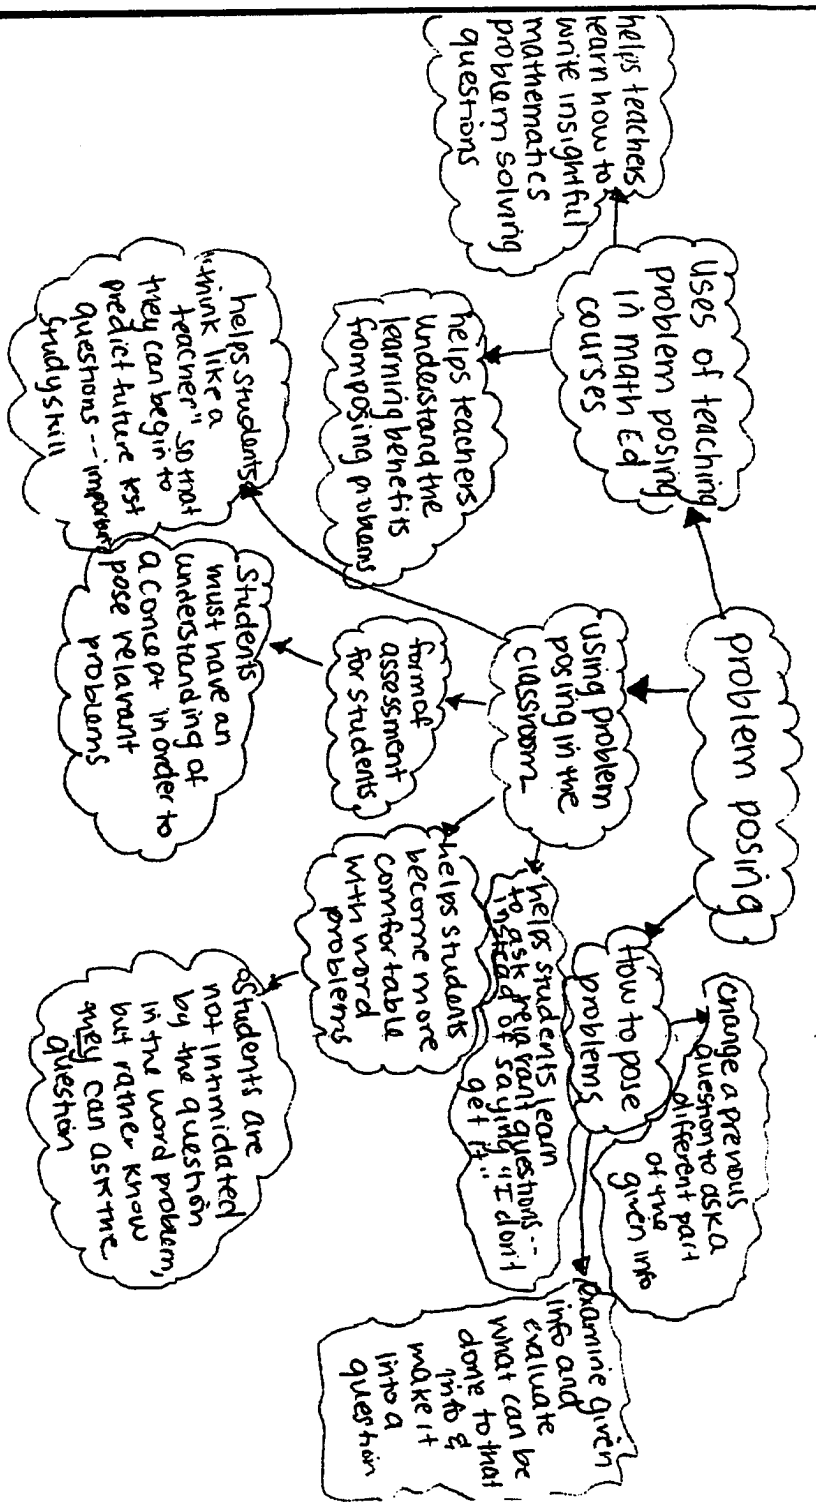 problem posing
Uses of teaching
problem posing
in math Ed
courses
helps teachers
learn how to
write insightful
mathematics
problem solving
questions
helps teachers
understand the
learning benefits
from posing problems
using problem
posing in the
classroom
helps students
"think like a
teacher" so that
they can begin to
predict future test
questions -- important
study skill
form of
assessment
for students
Students
must have an
understanding of
a concept in order to
pose relavant
problems
helps students
become more
comfortable
with word
problems
Students are
not intimidated
by the question
in the word problem,
but rather know
they can ask the
question
helps students learn
to ask relavant questions --
instead of saying "I don't
get it"
How to pose
problems
change a previous
question to ask a
different part
of the
given info
examine given
info and
evaluate
what can be
done to that
info &
make it
into a
question